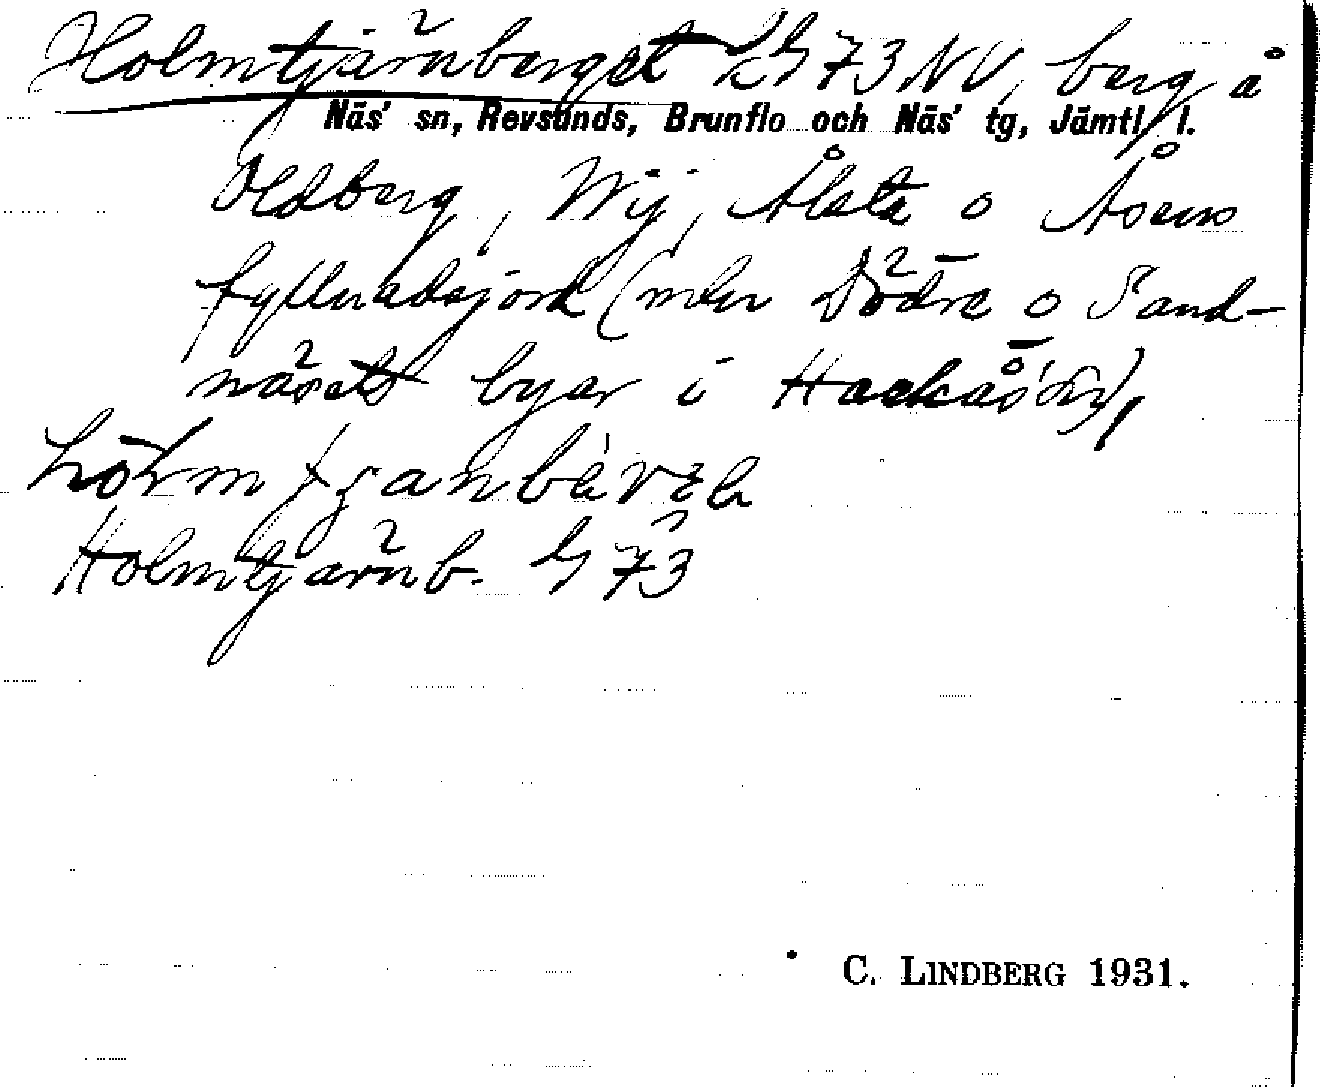 Holmtjärnberget 73 NV, berg å
Näs' sn, Revsunds, Brunflo och Näs' tg, Jämtl. l.
Oldberg, Wij, Ålsta o Åsens
fyllnadsjord (mler Södre o Sand-
näsets byar i Hackås
Holmtjärnb. 73
C. LINDBERG 1931.